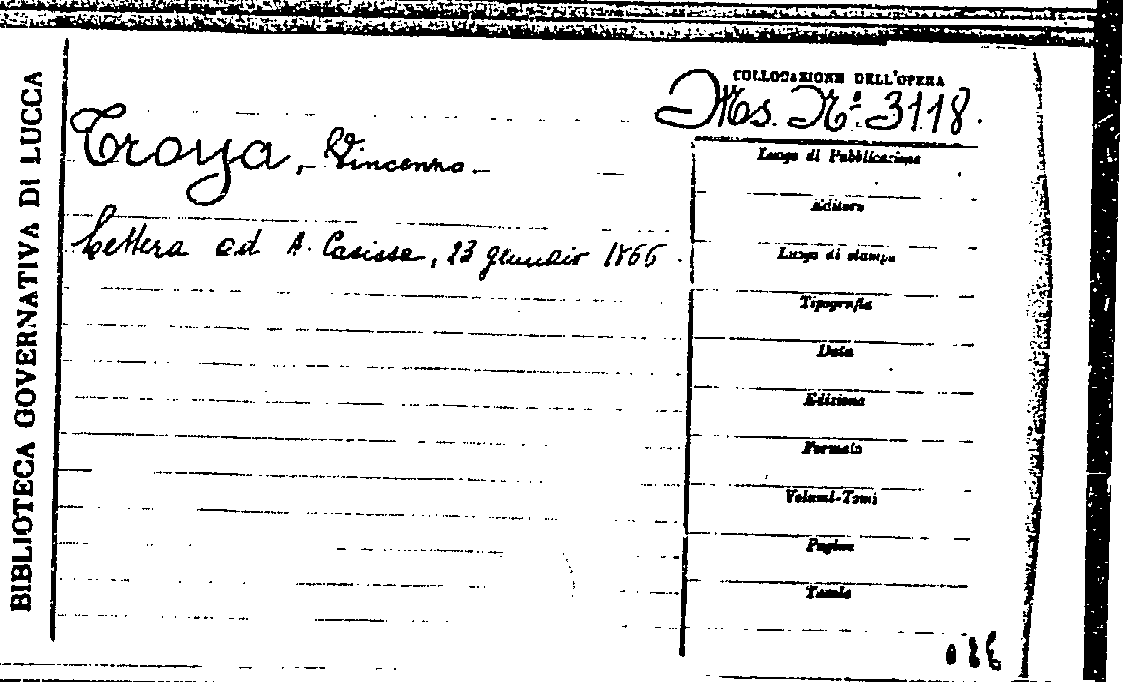 BIBLIOTECA GOVERNATIVA DI LUCCA
COLLOCAZIONE DELL'OPERA
Ms. Nº. 3118.
Troya, Vincenzo
Lettera ad A. Casissa, 23 gennaio 1866.
Luogo di Pubblicazione
Editore
Luogo di stampa
Tipografia
Data
Edizione
Formato
Volumi-Tomi
Pagine
Tavole